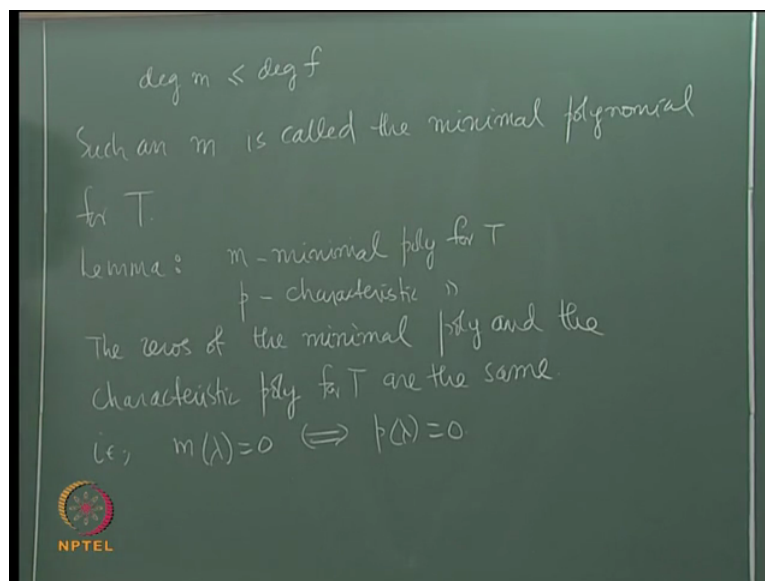 deg m ≤ deg f
Such an m is called the minimal polynomial
for T.
Lemma: m - minimal poly for T
p - characteristic "
The zeros of the minimal poly and the
characteristic poly for T are the same.
i.e., m(λ)=0 ⟺ p(λ)=0
NPTEL